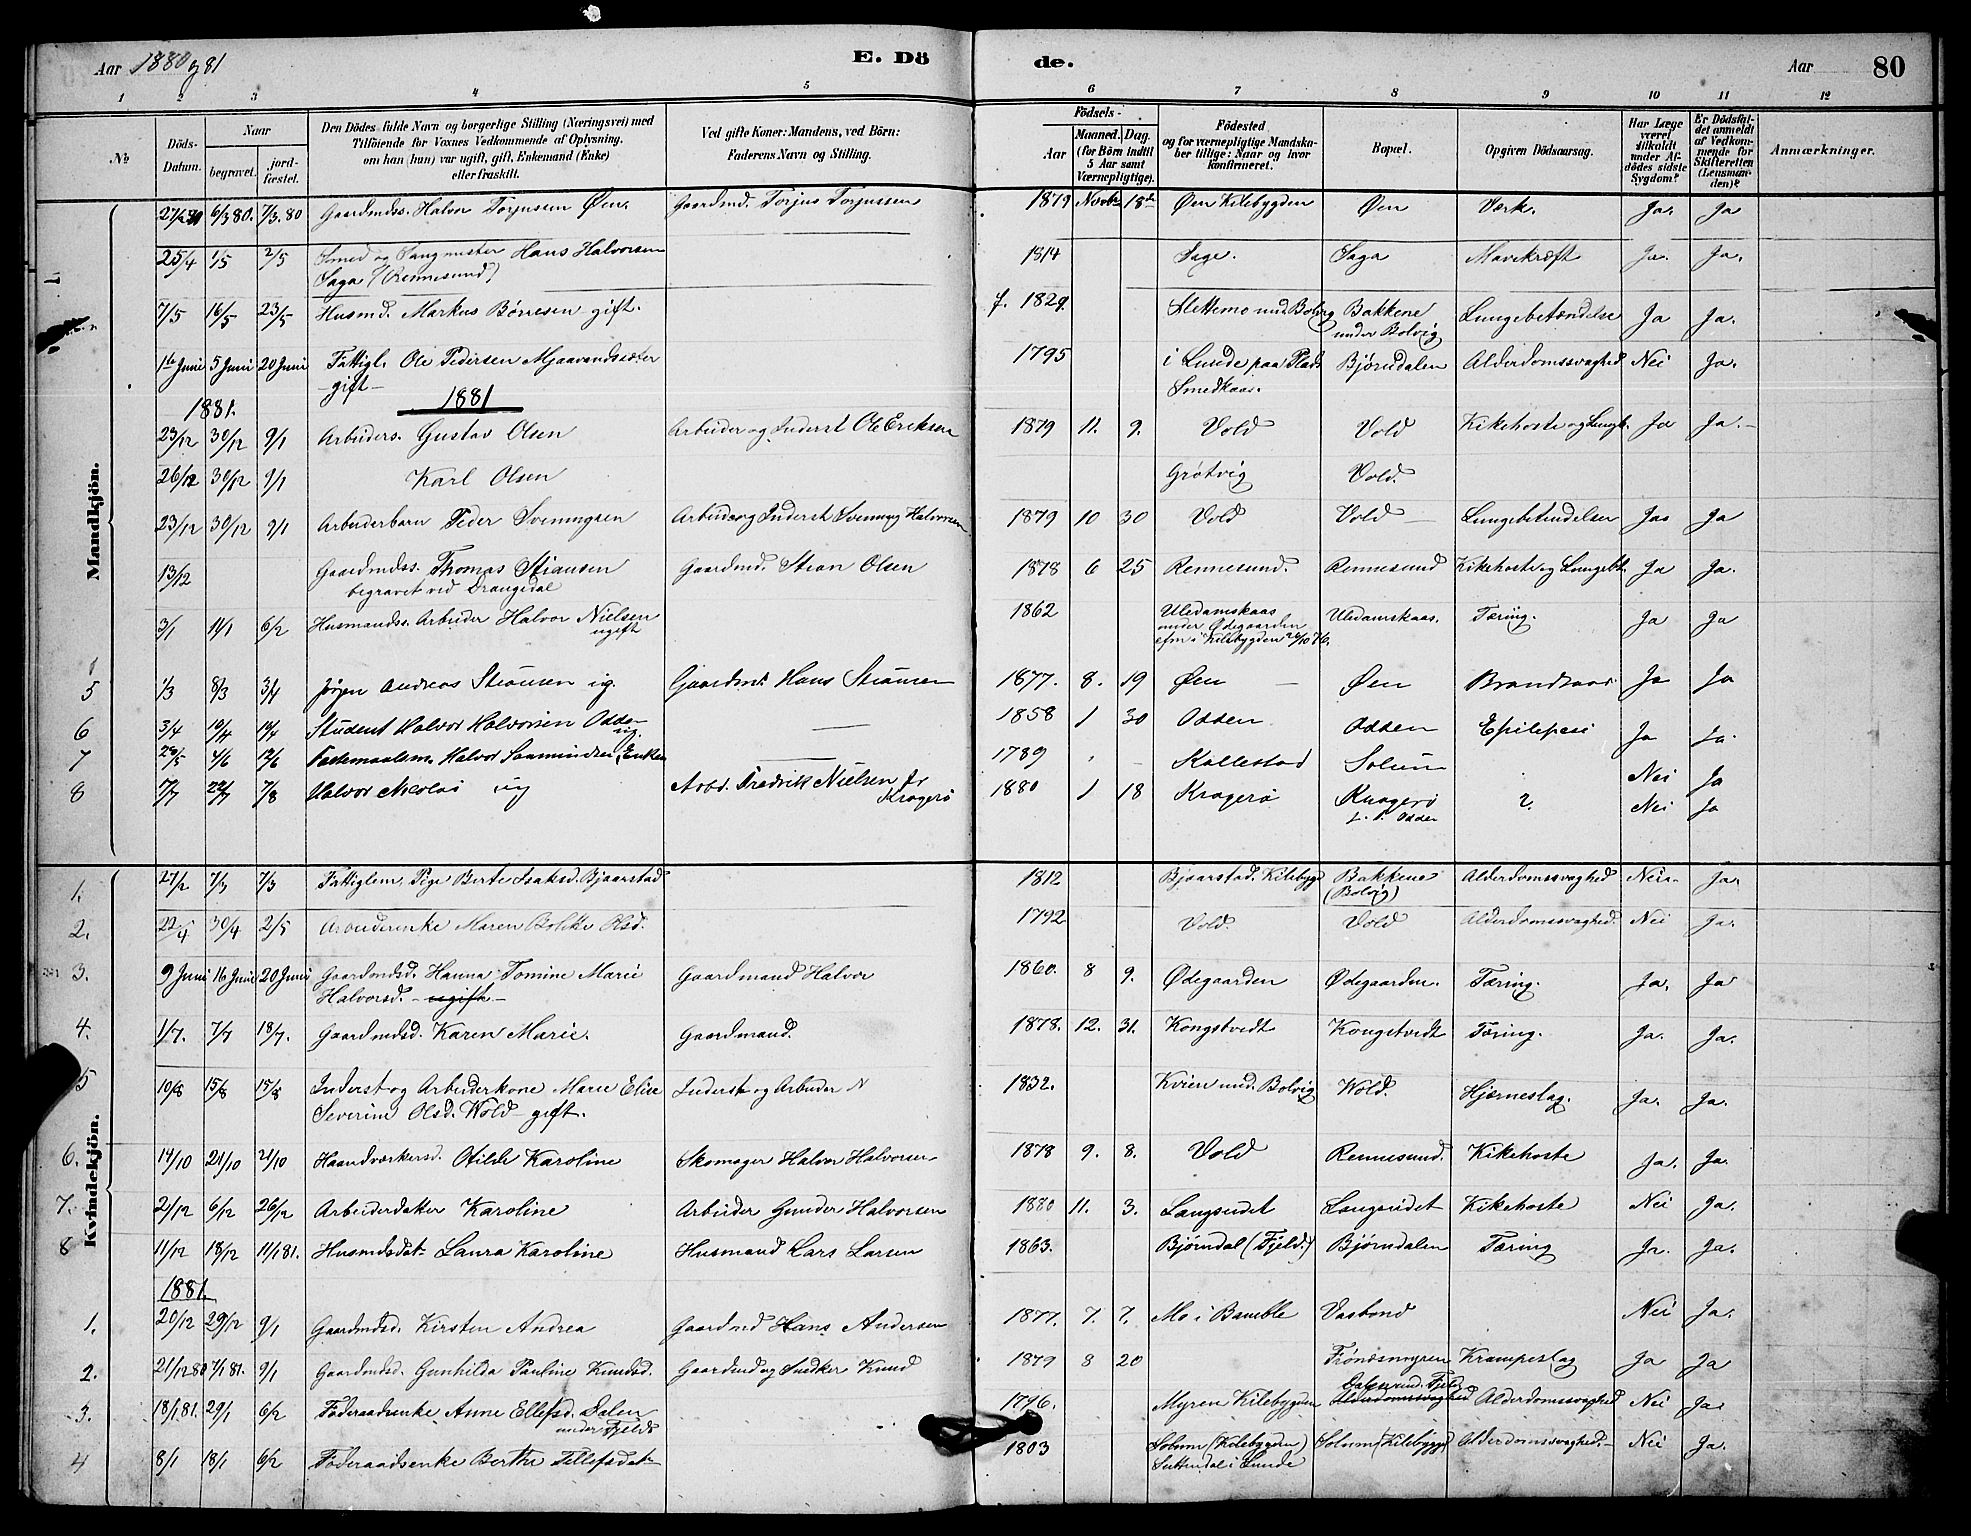 Aar 1880 og 81 E. Dö de. Aar 80
1 2 3 4 5 6 7 8 9 10 11 12
№ Döds-Datum. Naar begravet. jordfæstet. Den Dödes fulde Navn og borgerlige Stilling (Næringsvei) med Tilföiende for Voxnes Vedkommende af Oplysning, om han (hun) var ugift, gift, Enkemand (Enke) eller fraskilt. Ved gifte Koner: Mandens, ved Börn: Faderens Navn og Stilling. Födsels- Aar Maaned. Dag. (for Börn indtil 5 Aar samt Værnepligtige). Födested og for værnepligtige Mandskaber tillige: Naar og hvor konfirmeret. Bopæl. Opgiven Dödsaarsag. Har Læge været tilkaldt under Afdödes sidste Sygdom? Er Dödsfaldet anmeldt af Vedkommende for Skifteretten (Lensmanden)? Anmærkninger.
Mandkjön.
6/3 80. 7/3. 80 Gaardmdss. Halvor Torjussen Øen. Gaardmd. Torjus Torjussen 1879 Novbr 18de Øen Kilebygden Øen Værk. Ja. Ja
25/4 1/5 2/5 Smed og Sangmester Hans Halvorsen 1814 Sage. Saga Mavekræft Ja. Ja.
Saga (Rennesund)
7/5 16/5 23/5 Husmd. Markus Börresen gift. f. 1829 Slettemo und. Bolvig Bakkene Lungebetændelse Ja Ja.
under Bolvig
1ste Juni 5 Juni 20 Juni Fattigl. Ole Pedersen Mjaavandsæter 1795 i Lunde paa Plads Bjørndalen Alderdomssvaghed Nei Ja.
gift- Smedkaas.
1881. 1881
23/12 30/12 9/1 Arbeiders. Gustav Olsen Arbeider og Inderst Ole Eriksen 1879 11. 9. Vold Vold Kikehoste og Lungb. Ja Ja.-
26/12 30/12 9/1 Karl Olsen Grøtvig Vold.
23/12 30/12 9/1 Arbeiderbarn Peder Svenningsen Arbeider og Inderst Svennug Halvorsen 1879 10 30 Vold Vold Lungebetændelse Ja Ja
13/12 Gaardmdss. Thomas Stiansen Gaardmd. Stian Olsen 1878 6 25 Rennesund. Rennesund Kikehoste og Lungebt. Ja Ja.
begravet ved Drangedal
3/1 11/1 6/2 Husmandss. Arbeider Halvor Nielsen 1862 Uledamskaas Uledamskaas. Tæring. Ja Ja
ugift under Ødegaarden
cfm i Kilebygden
5 1/3 8/3 3/4 Jørgen Andreas Stiansen ug. Gaardmd Hans Stiansen 1877. 8. 19 Øen Øen Ja Ja
6 3/4 10/4 19/4 Student Halvor Halvorsen Odden ug. 1858 1 30 Odden Odden Epilepsi Ja Ja.
7 28/5 4/6 12/6 Halvor Saamundsen, Enkem. 1789 Kallestad Solum Nei Ja
8 7/7 22/7 7/8 Halvor Nicolai ug Arbd. Fredrik Nielsen fr Kragerø 1880 1 18 Kragerø Kragerø ? Nei Ja
Odden
Kvindekjön.
1. 27/2 7/3 7/3 Fattiglem, Pige Berte Isaksd. Bjaarstad 1812 Bjaarstad. Kilebygd Bakkene Alderdomssvaghed Nei. Ja.
(Bolvig)
2. 22/4 30/4 2/5 Arbeiderenke Maren Bolette Olsd. 1792 Vold. Vold Alderdomssvaghed. Nei Ja.
3. 9 Juni 16 Juni 20 Juni Gaardmdsd. Hanna Tomine Marie Gaardmand Halvor 1860. 8 9. Ødegaarden Ødegaarden. Tæring. Ja. Ja
Halvorsd. -ugift-
4. 1/7. 7/7 18/7. Gaardmdsd. Karen Marie. Gaardmand. 1878. 12. 31. Kongstvedt Kongstvedt Tæring. Ja. Ja.
5 10/8 15/8 15/8 Inderst og Arbeiderkone Marie Elise Inderst og Arbeider N 1832. Kvien und. Bolvig Wold. Hjærneslag. Ja. Ja.
Severine Olsd. Wold- gift.
6. 14/10 21/10 21/10 Haandværkersd. Otilde Karoline Skomager Halvor Halvorsen 1878 9. 8. Vold Rennesund. Kikehoste Ja. Ja.
7. 2/12 6/12 26/12 Arbeiderdatter Karoline Arbeider Gunder Halvorsen 1880 11. 3. Langsudet Langsudet Kikehoste Nei Ja.
8 11/12 18/12 11/1 81. Husmdsdat- Laura Karoline Husmand Lars Larsen 1863. Bjørndal (Fjeld.) Bjørndalen Tæring Ja. Ja.
1881.
1. 20/12 29/12 9/1 Gaardmdsd. Kirsten Andrea Gaardmd Hans Andersen 1877. 7. 7. Mo i Bamble Vasbond Nei Ja.
2. 21/12 80 7/1 81. 9/1 Gaardmdsd. Gunhilda Pauline Knudsd. Gaardmd og Snedker Knud 1879 8 20 Frönesmyren Krampeslag Ja Ja
3. 18/1 81. 29/1 6/2 Föderaadsenke Anne Ellefsd. Dalen 1796. Myren Kilebygden Dalen und. Fjeld Alderdomssvaghed Alderdomssvaghed Nei Ja.
under Fjeld
4 8/1 18/1 6/2 Föderaadsenke Berthe Tellefsdat- 1803 Solum (Kilebygden) Solum (Kilebygd) Alderdomssvaghed.- Nei Ja.
i Lunde